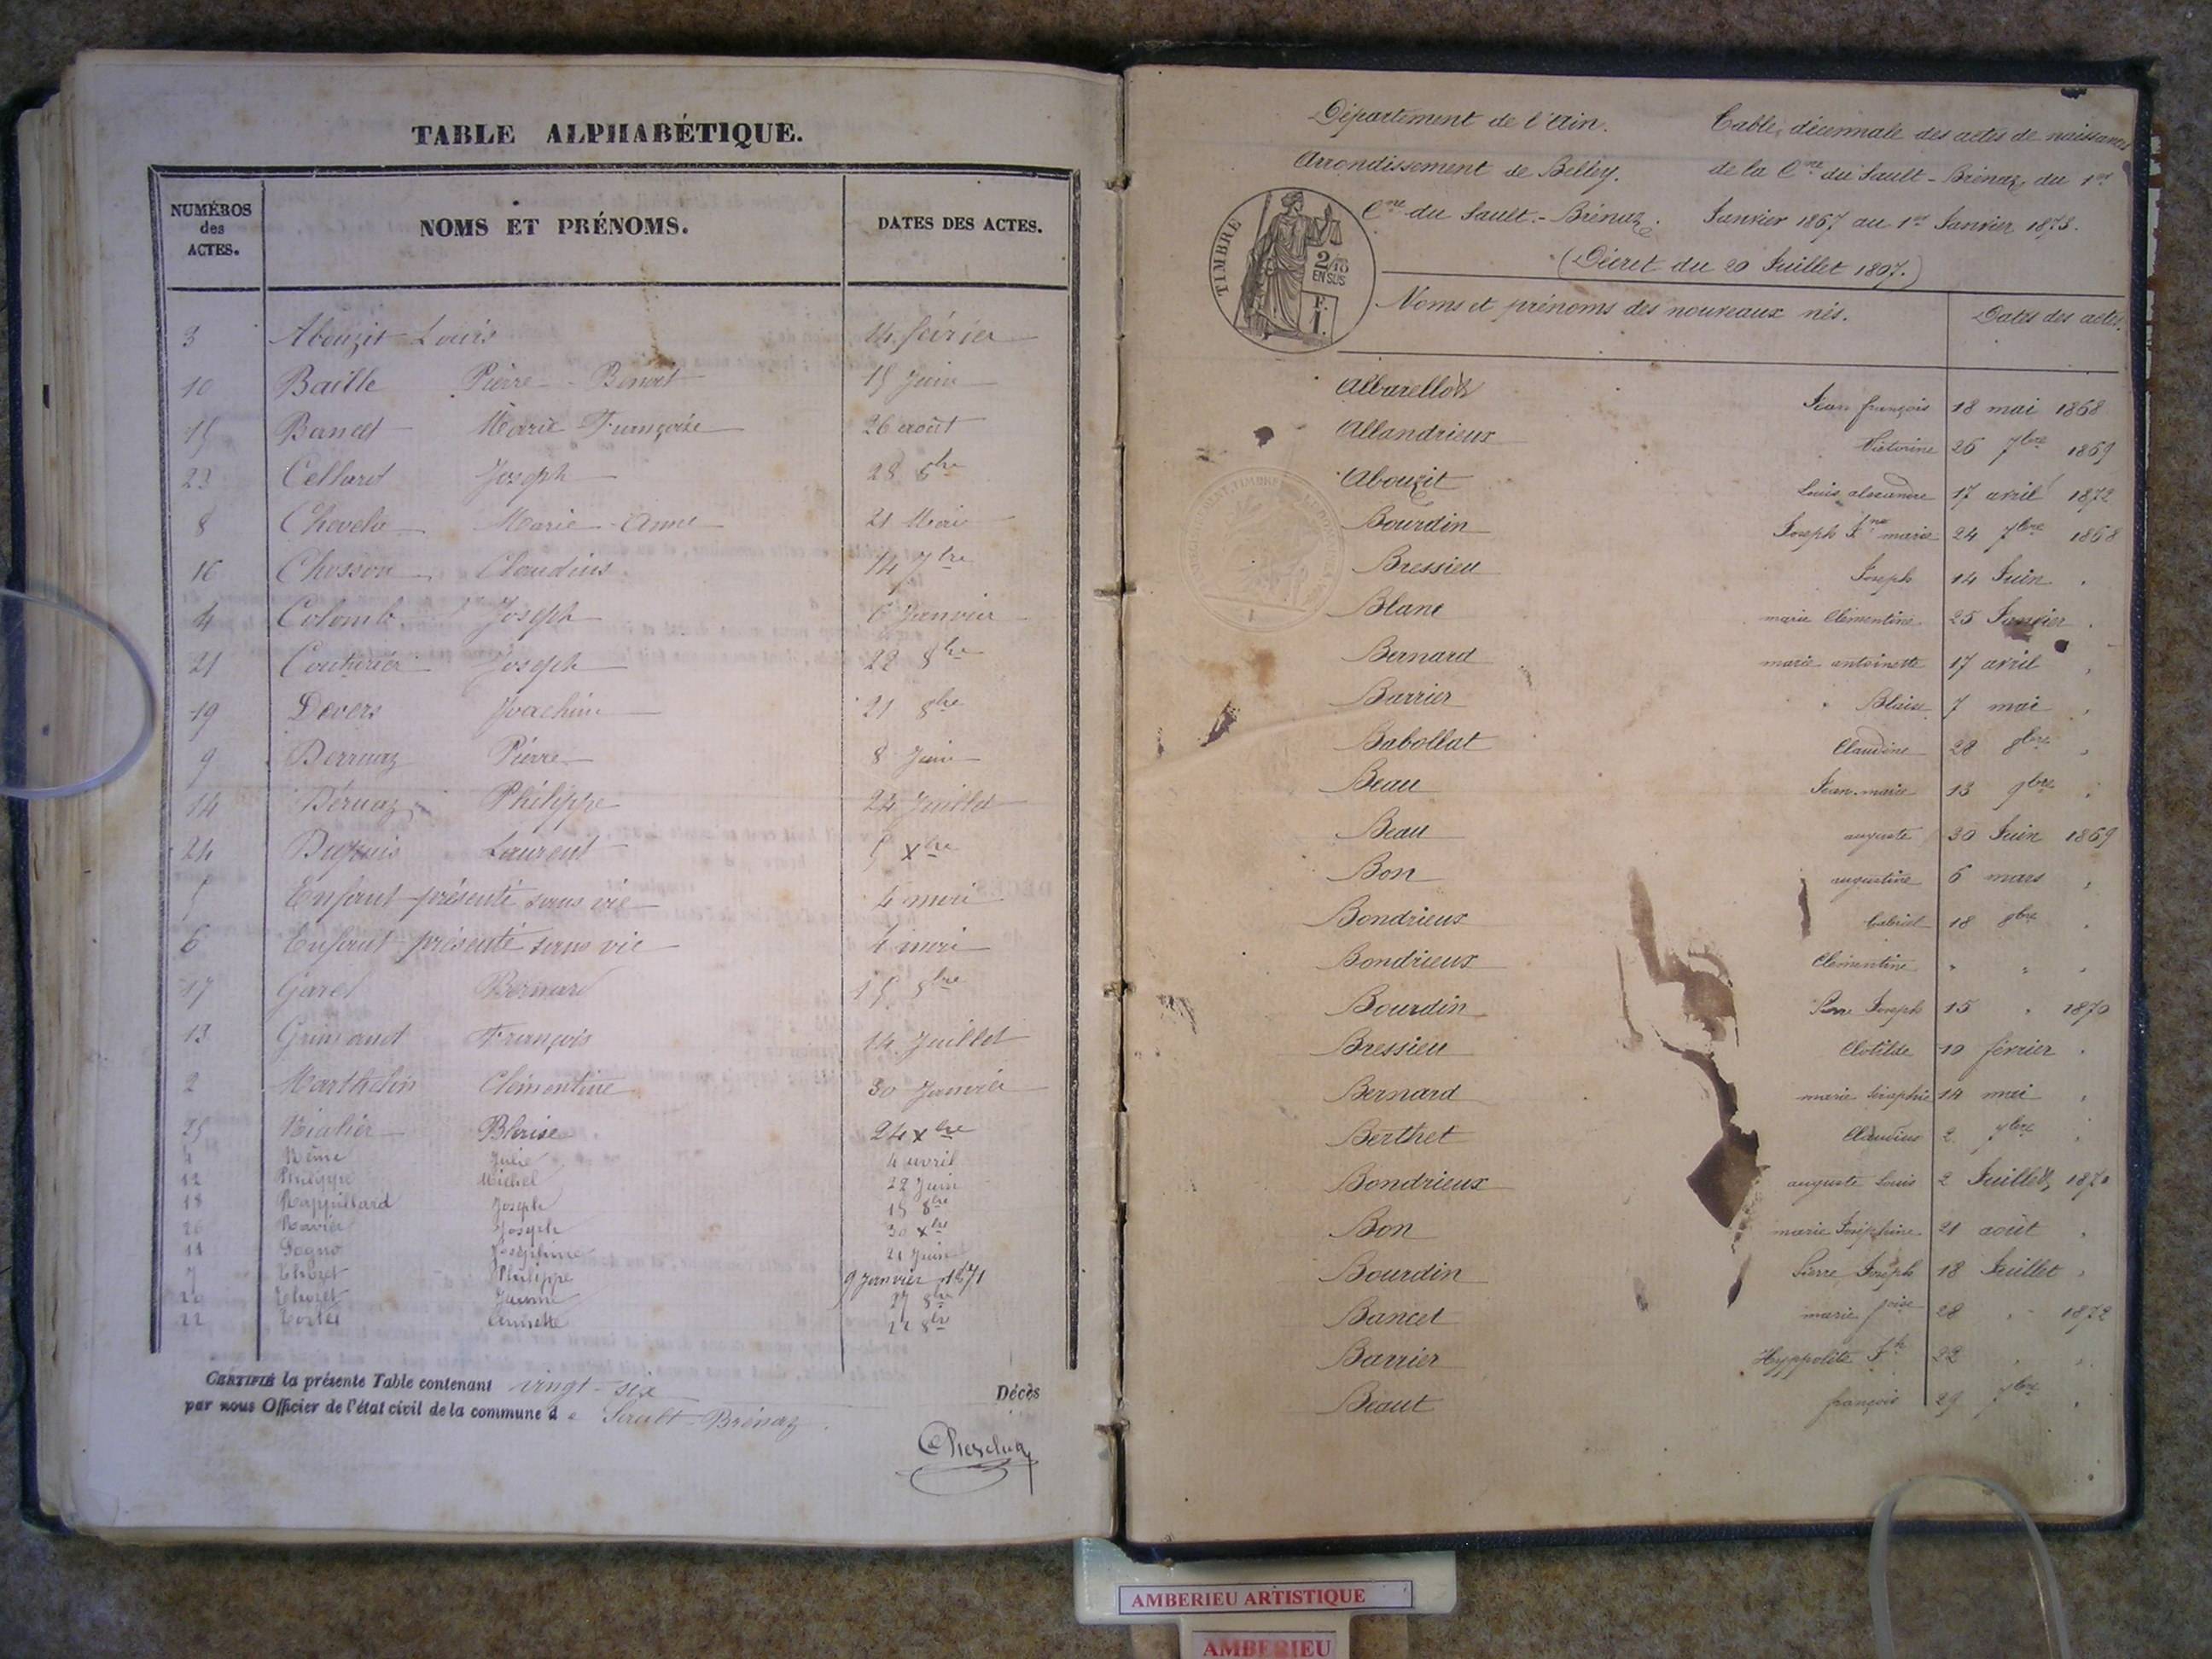 TABLE ALPHABÉTIQUE.
NUMÉROS
des
ACTES.
NOMS ET PRÉNOMS.
DATES DES ACTES.
3 Abouzit Louis 14 février
10 Baille Pierre - Benoit 15 Juin
15 Bancet Marie Françoise 26 août
23 Cellard Joseph 28 8bre
8 Marie - Anne 21 Mai
16 Chosson Claudius 14 7bre
4 Colomb Joseph 6 Janvier
21 Couturier Joseph 22 8bre
19 Devers Joachim 21 8bre
9 Derruaz Pierre 8 Juin
14 Déruaz Philippe 24 Juillet
24 Dupuis Laurent 5 Xbre
5 Enfant présenté sans vie 4 mai
6 Enfant présenté sans vie 4 mai
17 Garel Bernard 15 8bre
13 Grimand François 14 Juillet
2 Marthelin Clémentine 30 Janvier
25 Blaise 24 Xbre
Julie 4 avril
12 Philippe Michel 22 Juin
18 Rappillard Joseph 15 8bre
26 Ravier Joseph 30 Xbre
11 Joséphine 21 Juin
7 Thozet Philippe 9 Janvier 1871
20 Thozet 27 8bre
22 8bre
CERTIFIÉ la présente Table contenant vingt-six Décès
par nous Officier de l'état civil de la commune d e Sault-Brénaz
Département de l'Ain.
Arrondissement de Belley.
Cne du Sault-Brénaz.
Table décennale des actes de naissances
de la Cne du Sault-Brénaz, du 1er
Janvier 1867 au 1er Janvier 1873.
(Décret du 20 Juillet 1807.)
TIMBRE
2/10
EN SUS
F.
1.
Noms et prénoms des nouveaux nés. Dates des actes.
Jean françois 18 mai 1868
Allandrieux Victorine 26 7bre 1869
Abouzit Louis alexandre 17 avril 1872
Bourdin Joseph marie 24 7bre 1868
Bressieu Joseph 14 Juin "
Blanc marie Clémentine 25 Janvier "
Bernard marie antoinette 17 avril "
Barrier Blaise 7 mai "
Babollat Claudine 28 8bre "
Beau Jean-marie 13 9bre "
Beau auguste 30 Juin 1869
Bon augustine 6 mars "
Bondrieux Gabriel 18 8bre "
Bondrieux Clémentine " " "
Bourdin Joseph 15 " 1870
Bressieu Clotilde 10 février "
Bernard marie Séraphie 14 mai "
Berthet Claudius 2 7bre "
Bondrieux auguste Louis 2 Juillet 187
Bon marie Joséphine 21 août "
Bourdin Pierre Joseph 18 Juillet "
Bancet marie foise 28 " 1872
Barrier Hyppolite Jh 22 " "
Beaut françois 29 7bre "
AMBERIEU ARTISTIQUE
AMBERIEU